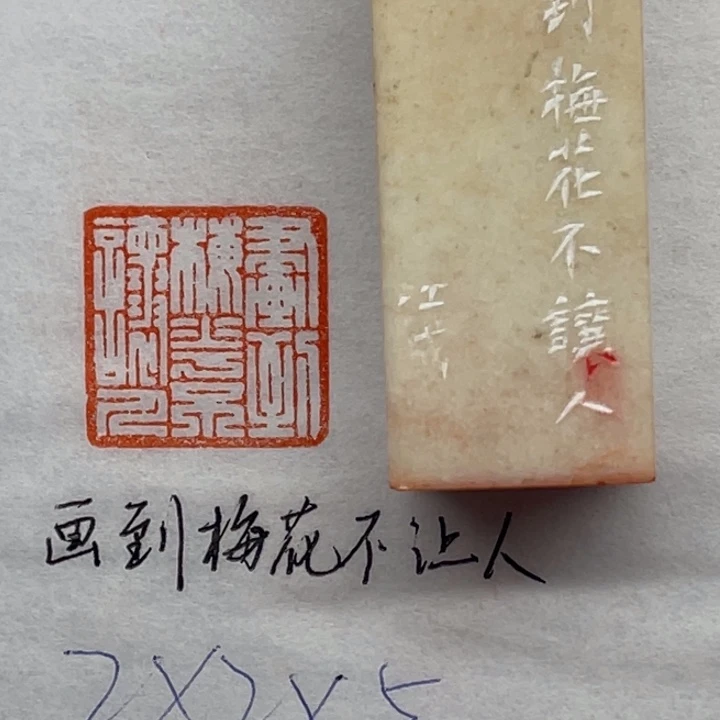 畫到
梅花不
讓人
到梅花不讓人
江成
画到梅花不让人
2X2X5